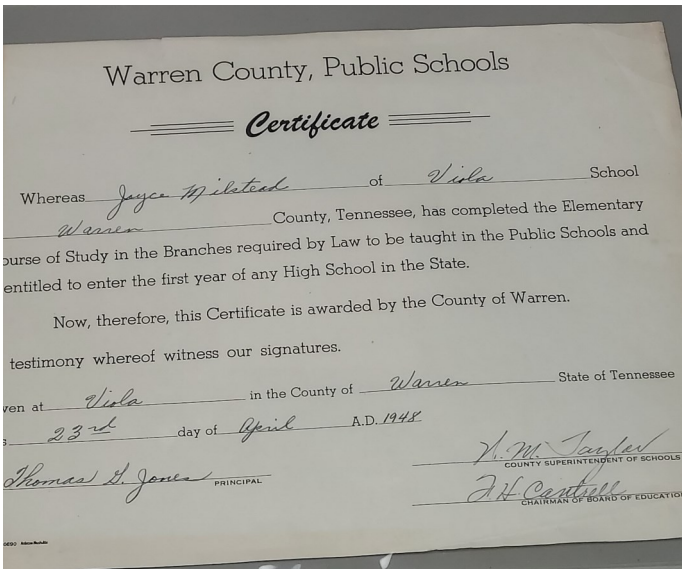 Warren County, Public Schools
Certificate
Whereas Joyce Milstead of Viola School
Warren County, Tennessee, has completed the Elementary
ourse of Study in the Branches required by Law to be taught in the Public Schools and
entitled to enter the first year of any High School in the State.
Now, therefore, this Certificate is awarded by the County of Warren.
testimony whereof witness our signatures.
ven at Viola in the County of Warren State of Tennessee
s 23rd day of April A.D. 1948
Thomas G. Jones PRINCIPAL
N. M. Taylor
COUNTY SUPERINTENDENT OF SCHOOLS
F H Cantrell
CHAIRMAN OF BOARD OF EDUCATIO